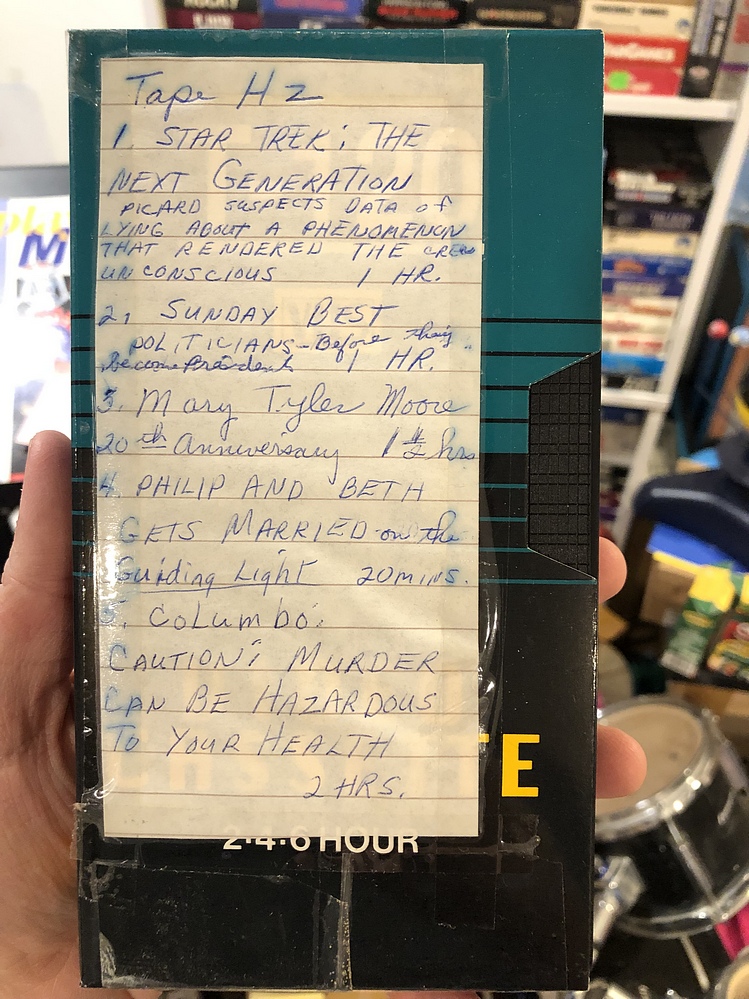 Tape H2
1. STAR TREK: THE
NEXT GENERATION
PICARD SUSPECTS DATA of
LYING ABOUT A PHENOMENON
THAT RENDERED THE CREW
UNCONSCIOUS 1 HR.
2, SUNDAY BEST
POLITICIANS-Before they
become President 1 HR.
3. Mary Tyler Moore
20th Anniversary 1 1/2 hrs
4. PHILIP AND BETH
GETS MARRIED on the
Guiding Light 20 MINS.
5. Columbo:
CAUTION: MURDER
CAN BE HAZARDOUS
TO YOUR HEALTH
2 HRS.
E
2·4·6 HOUR